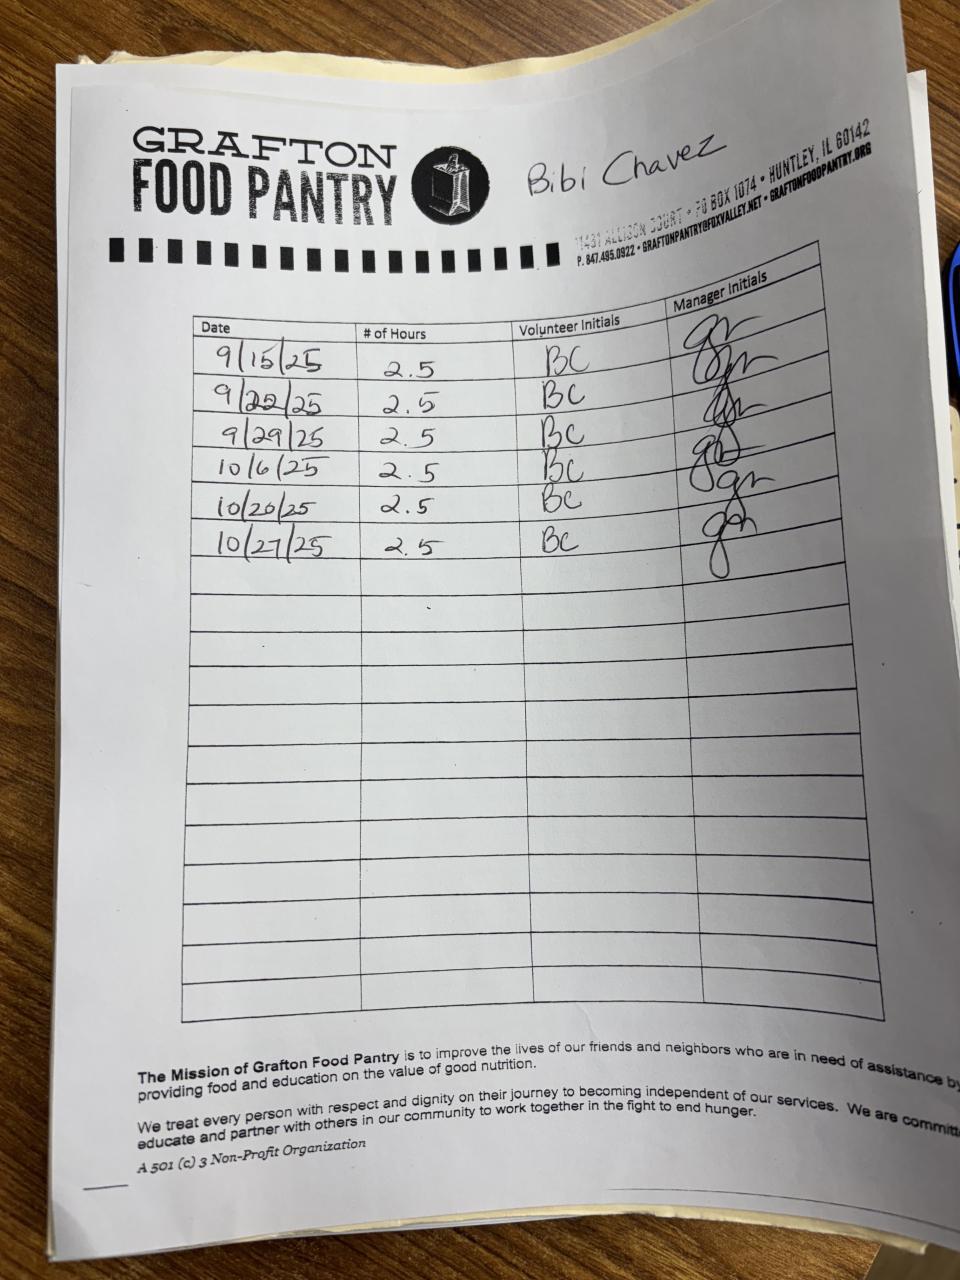 GRAFTON
FOOD PANTRY
Bibi Chavez
11431 ALLISON COURT • PO BOX 1074 • HUNTLEY, IL 60142
P. 847.495.0922 • GRAFTONPANTRY@FOXVALLEY.NET • GRAFTONFOODPANTRY.ORG
Date # of Hours Volunteer Initials Manager Initials
9/15/25 2.5 BC
9/22/25 2.5 BC
9/29/25 2.5 BC
10/6/25 2.5 BC
10/20/25 2.5 BC
10/27/25 2.5 BC
The Mission of Grafton Food Pantry is to improve the lives of our friends and neighbors who are in need of assistance by
providing food and education on the value of good nutrition.
We treat every person with respect and dignity on their journey to becoming independent of our services. We are committ
educate and partner with others in our community to work together in the fight to end hunger.
A 501 (c) 3 Non-Profit Organization